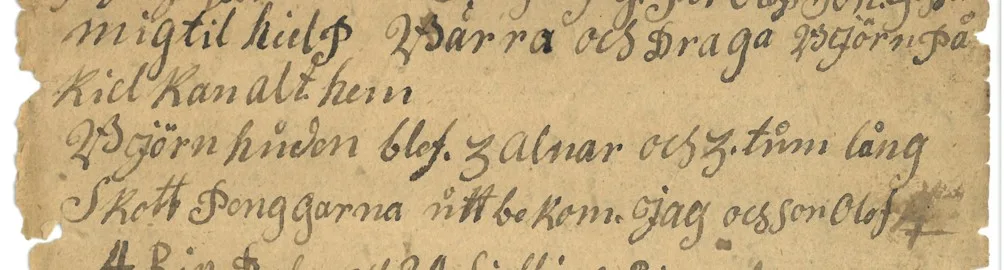 mig til hielp Bärra och Draga Björn på
kiel kan alt hem
Björn huden blef. 3 alnar och 3. tum lång
Skott Penggarna utt be kom. jag och son Olof 4